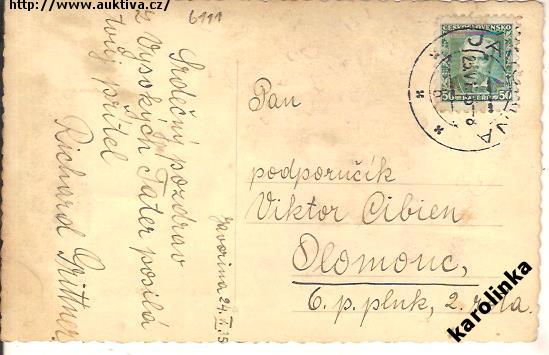 http://www.auktiva.cz/
6111
Srdečný pozdrav
z Vysokých Tater posílá
tvůj přítel
Richard Grittner
Javorina 24.V.35
ČESKOSLOVENSKO
50 HALÉŘŮ 50
Pan
podporučík
Viktor Cibien
Olomouc,
6. p. pluk, 2. rota.
karolinka